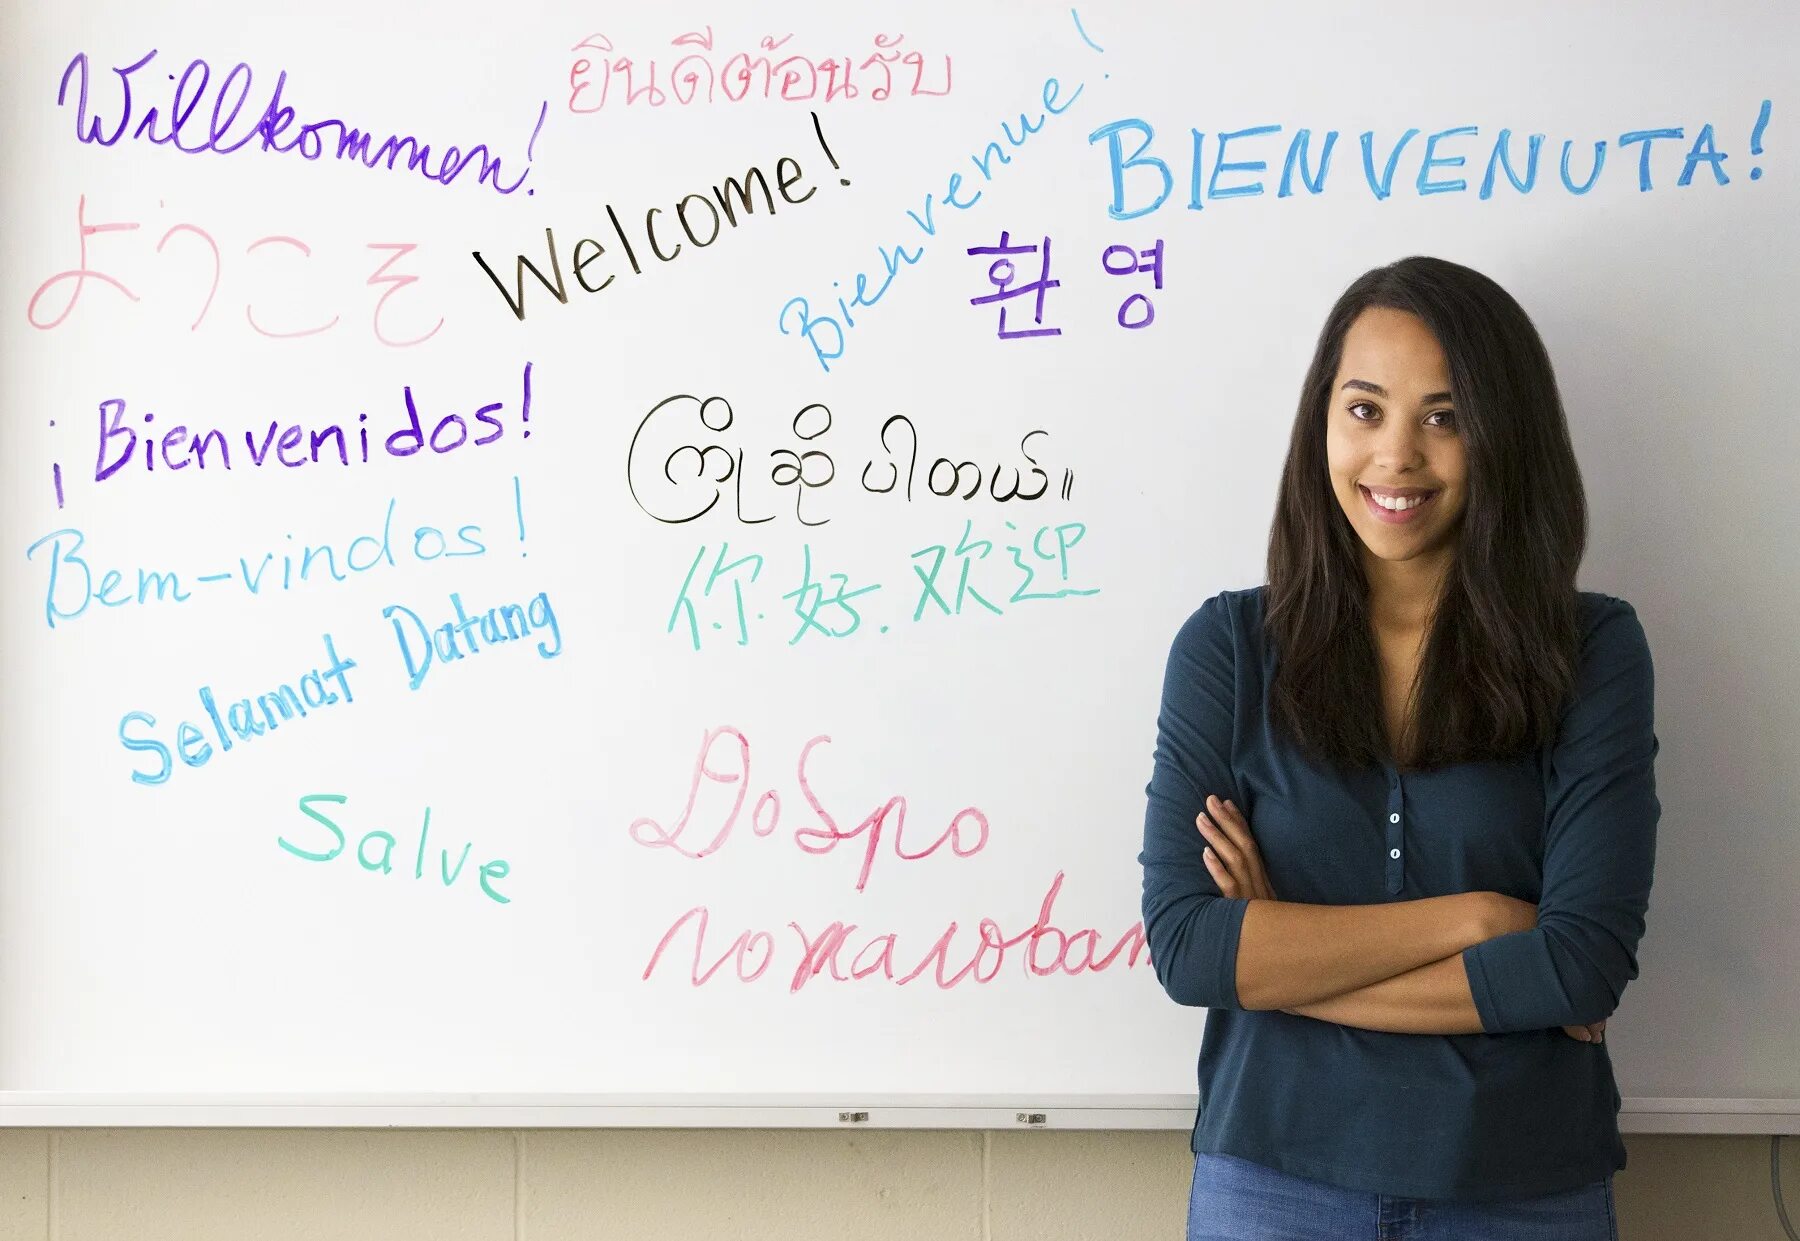 Willkommen!
ยินดีต้อนรับ
Bienvenue!
BIENVENUTA!
ようこそ
Welcome!
환영
¡Bienvenidos!
ကြိုဆိုပါတယ်။
Bem-vindos!
你好.欢迎
Selamat Datang
Salve
Добро
пожаловать